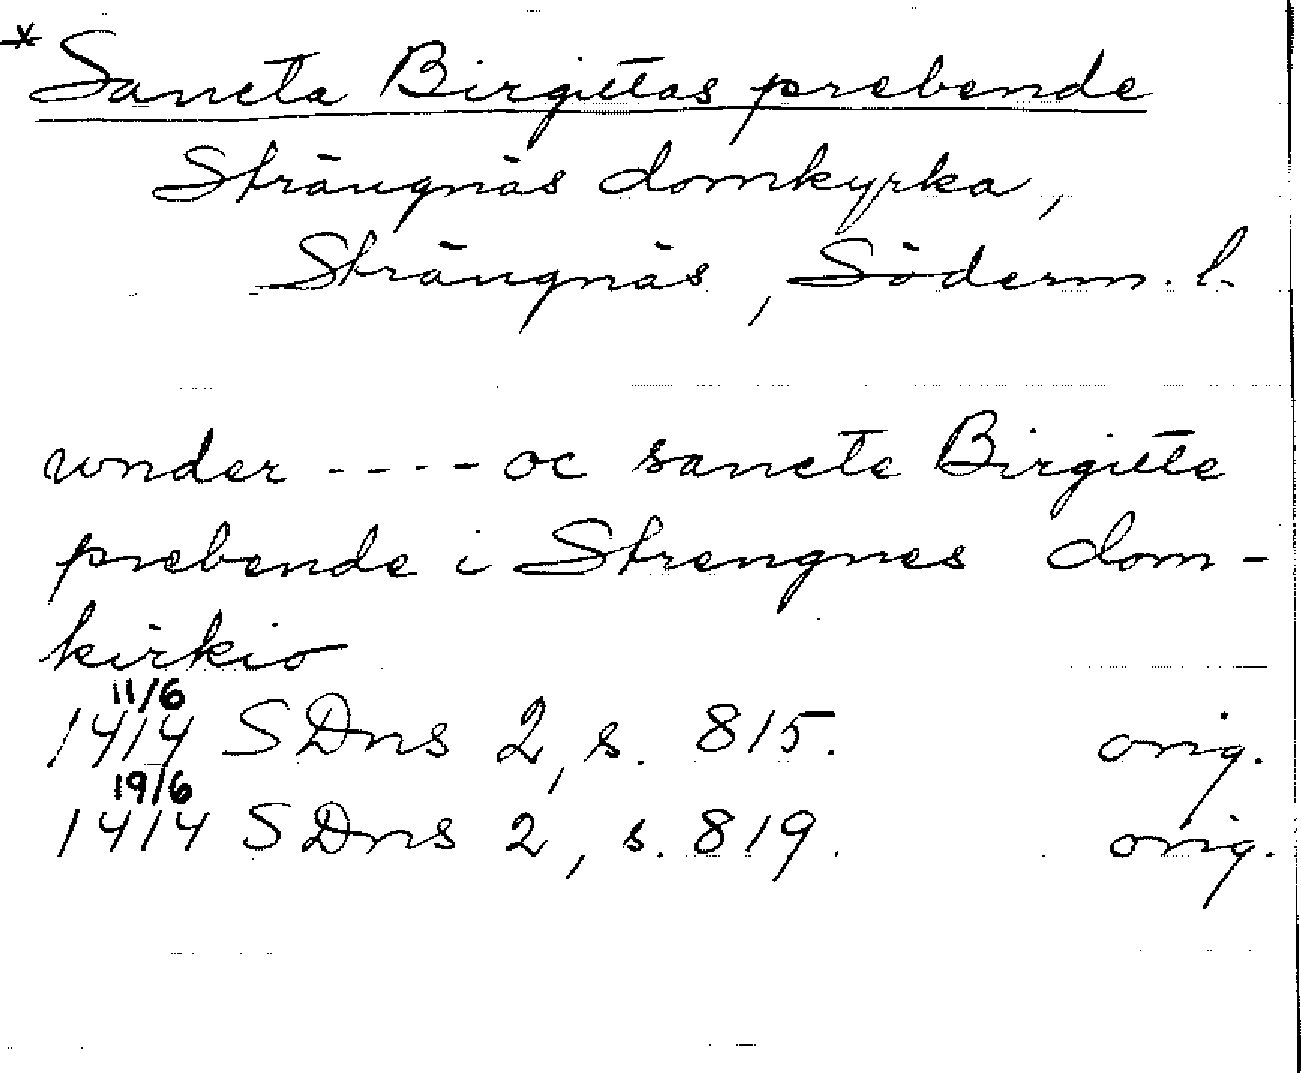 * Sancta Birgittas prebende
Strängnäs domkyrka,
Strängnäs, Söderm. l.
wnder - - - - oc sancte Birgitte
prebende i Strengnes dom-
kirkio
11/6
1414 SDns 2, s. 815. orig.
19/6
1414 SDns 2, s. 819. orig.